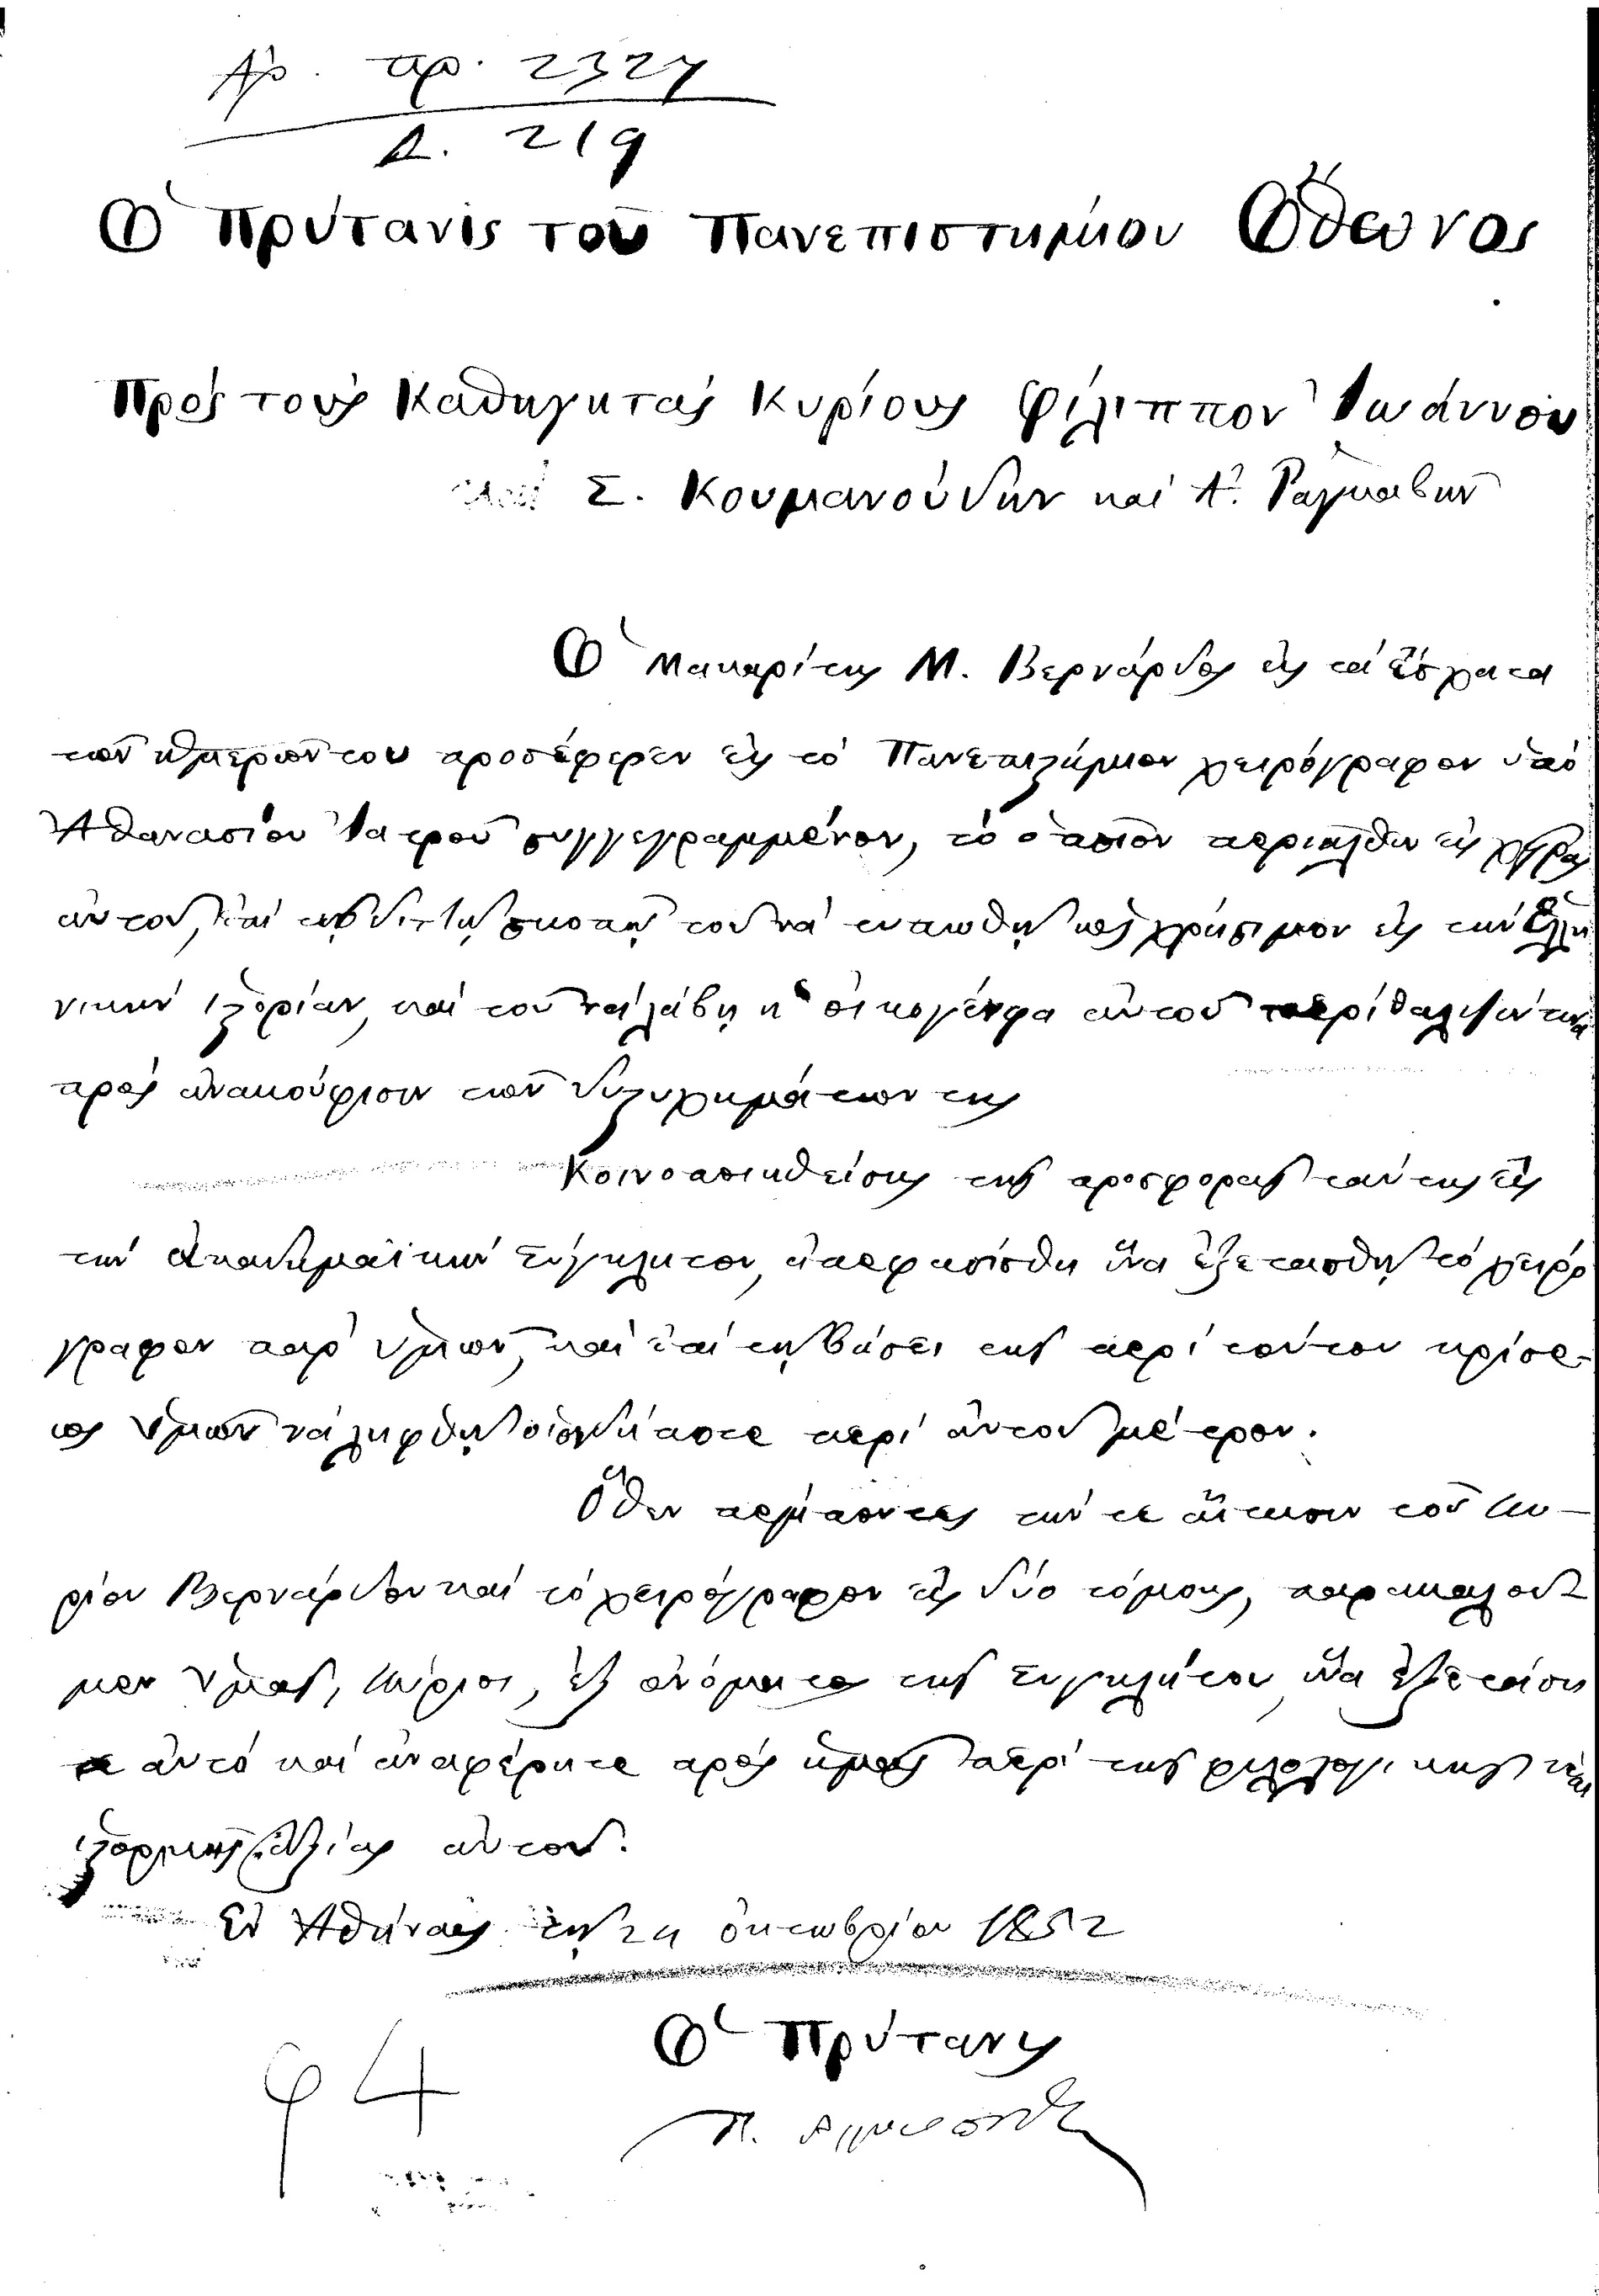 Ἀρ. πρ. 2327
Δ. 219
Ὁ Πρύτανις τοῦ Πανεπιστημίου Ὄθωνος
Πρὸς τοὺς Καθηγητὰς Κυρίους Φίλιππον Ἰωάννου
Σ. Κουμανούδην καὶ Ἀ. Ῥαγκαβῆν
Ὁ Μακαρίτης Μ. Βερνάρδος εἰς τὰ ἔσχατα
τῶν ἡμερῶν του προσέφερεν εἰς τὸ Πανεπιστήμιον χειρόγραφον ὑπὸ
Ἀθανασίου Ἰατροῦ συγγεγραμμένον, τὸ ὁποῖον περιῆλθεν εἰς χεῖρας
αὐτοῦ, καὶ σκοπῷ τοῦ νὰ ὡς χρήσιμον εἰς τὴν Ἑλλη
νικὴν ἱστορίαν, καὶ τοῦ νὰ λάβῃ ἡ οἰκογένεια αὐτοῦ περίθαλψίν τινα
πρὸς ἀνακούφισιν τῶν δυστυχημάτων της
Κοινοποιηθείσης τῆς προσφορᾶς ταύτης εἰς
τὴν Ἀκαδημαϊκὴν Σύγκλητον, ἀπεφασίσθη ἵνα ἐξετασθῇ τὸ χειρό
γραφον παρ’ ὑμῶν, καὶ ἐπὶ τῇ βάσει τῆς περὶ τούτου κρίσε-
ως ὑμῶν νὰ ληφθῇ οἱονδήποτε περὶ αὐτοῦ μέτρον.
Ὅθεν πέμποντες τήν τε αἴτησιν τοῦ Κυ-
ρίου Βερνάρδου καὶ τὸ χειρόγραφον εἰς δύο τόμους, παρακαλοῦ-
μεν ὑμᾶς, Κύριοι, ἐξ ὀνόματος τῆς Συγκλήτου, ἵνα ἐξετάση
τε αὐτὸ καὶ ἀναφέρητε πρὸς ἡμᾶς περὶ τῆς φιλολογικῆς καὶ
ἱστορικῆς ἀξίας αὐτοῦ.
Ἐν Ἀθήναις τῇ 24 Ὀκτωβρίου 1852
Ὁ Πρύτανις
Π. Ἀργυρόπουλος
φ 4